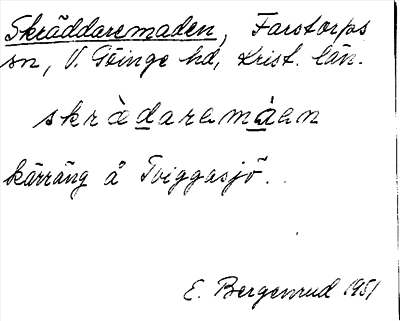 Skräddaremaden, Farstorps
sn, V. Göinge hd, Krist. län.
skrädaramáen
kärräng å Tviggasjö.
E. Bergenrud 1951